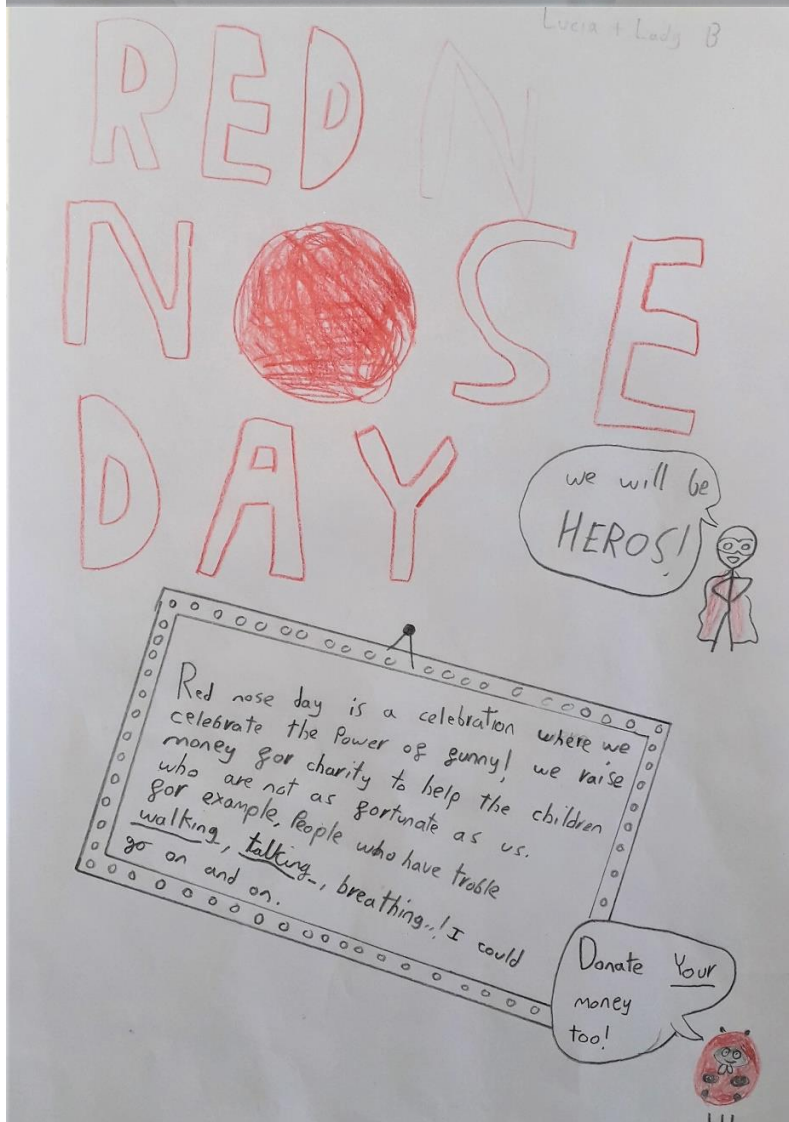 Lucia + Lady B
RED N
NOSE
DAY
we will be
HEROS!
Red nose day is a celebration where we
celebrate the Power of funny! we raise
money for charity to help the children
who are not as fortunate as us.
for example, People who have troble
walking, talking, breathing..! I could
go on and on.
Donate Your
money
too!